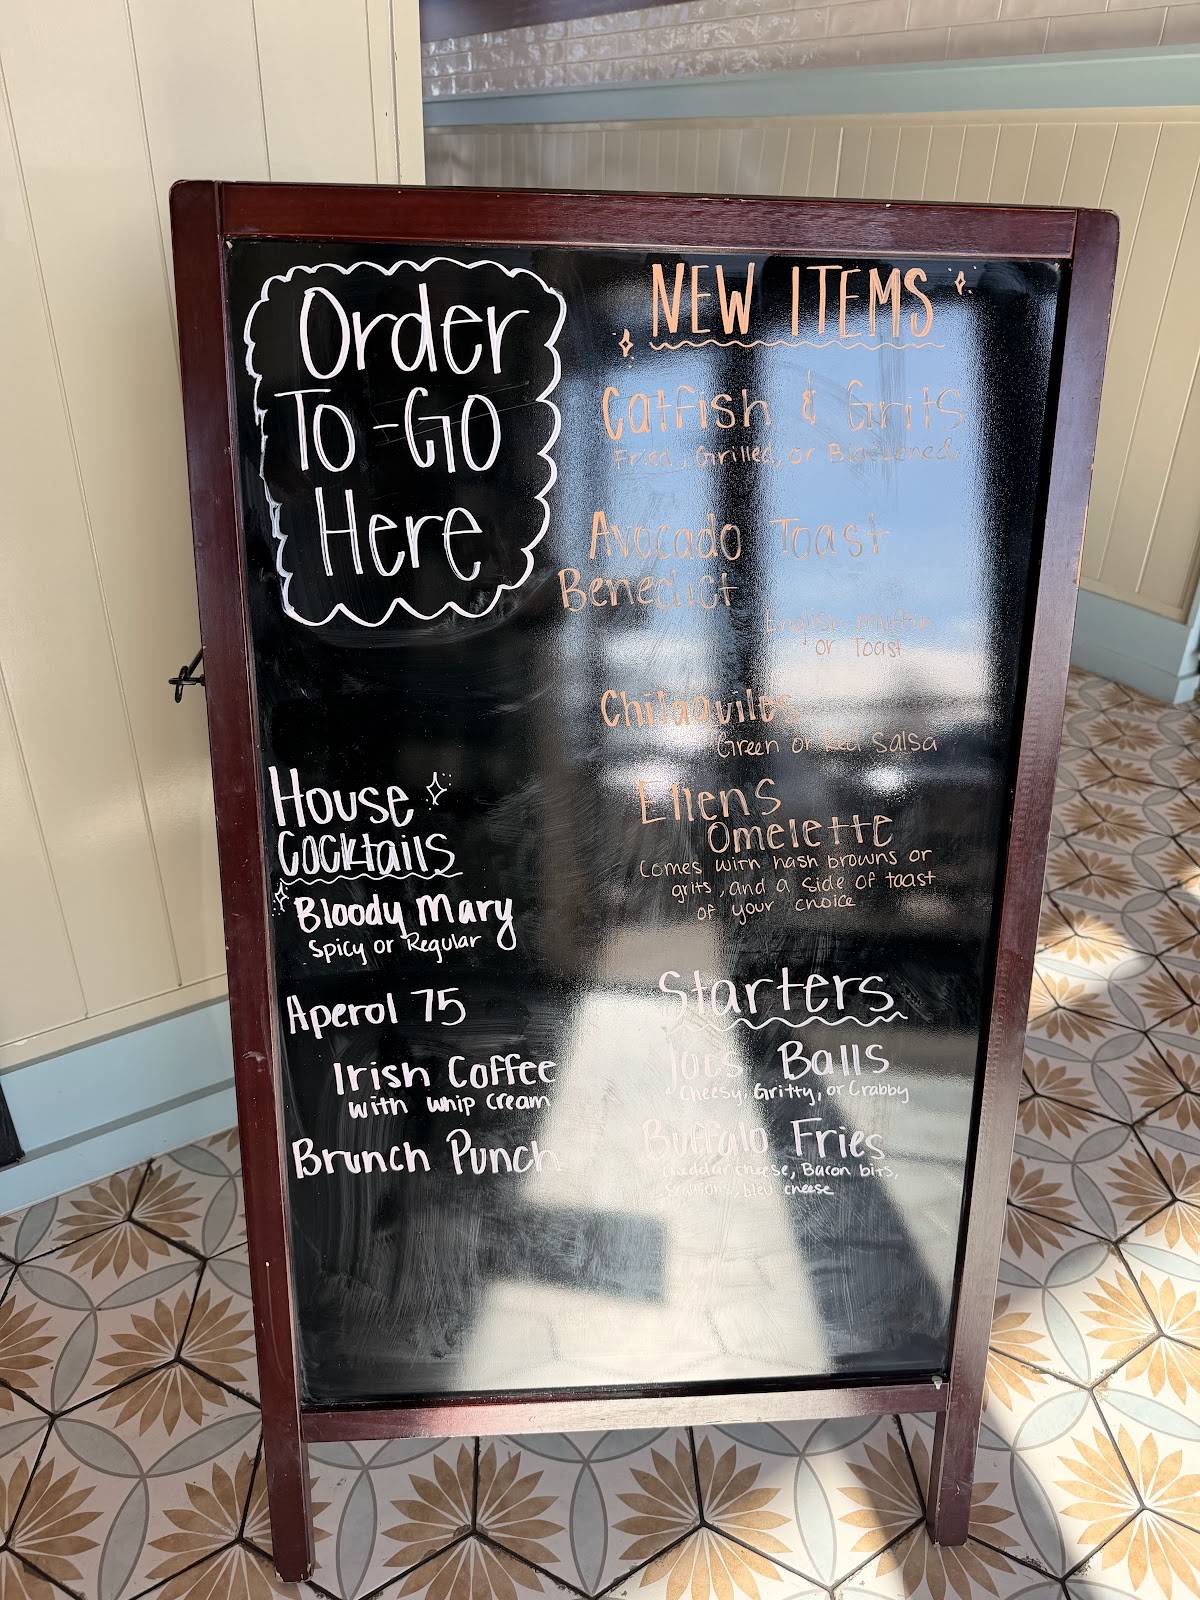 Order
To-Go
Here
House
Cocktails
Bloody Mary
Spicy or Regular
Aperol 75
Irish Coffee
with whip cream
Brunch Punch
NEW ITEMS
Catfish & Grits
Fried, Grilled, or Blackened
Avocado Toast
Benedict
English muffin
or Toast
Chilaquiles
Green or Red Salsa
Ellens
Omelette
Comes with hash browns or
grits, and a side of toast
of your choice
Starters
Joes Balls
Cheesy, Gritty, or Crabby
Buffalo Fries
Cheddar cheese, Bacon bits,
bleu cheese